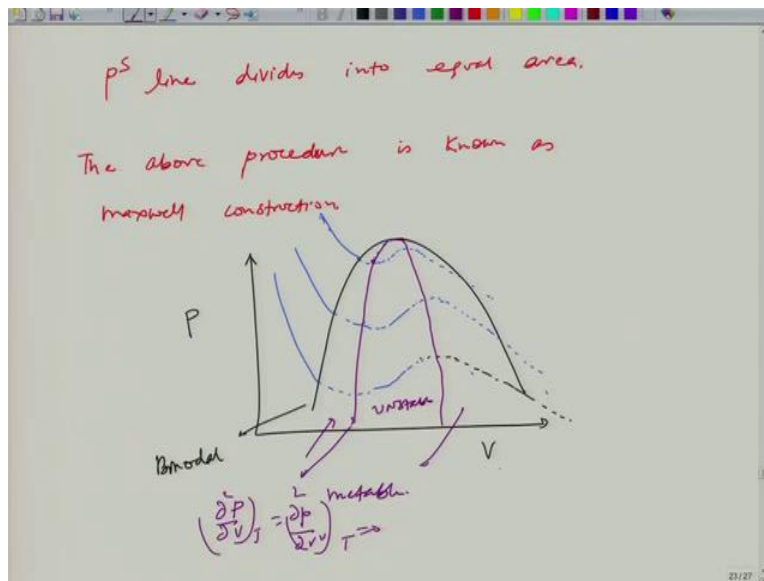 pS line divides into equal area.
The above procedure is known as
maxwell construction
P
UNSTABLE
V
Binodal
metastable.
(∂²P/∂v)_T = (∂²p/∂v²)_T ⇒
23/27